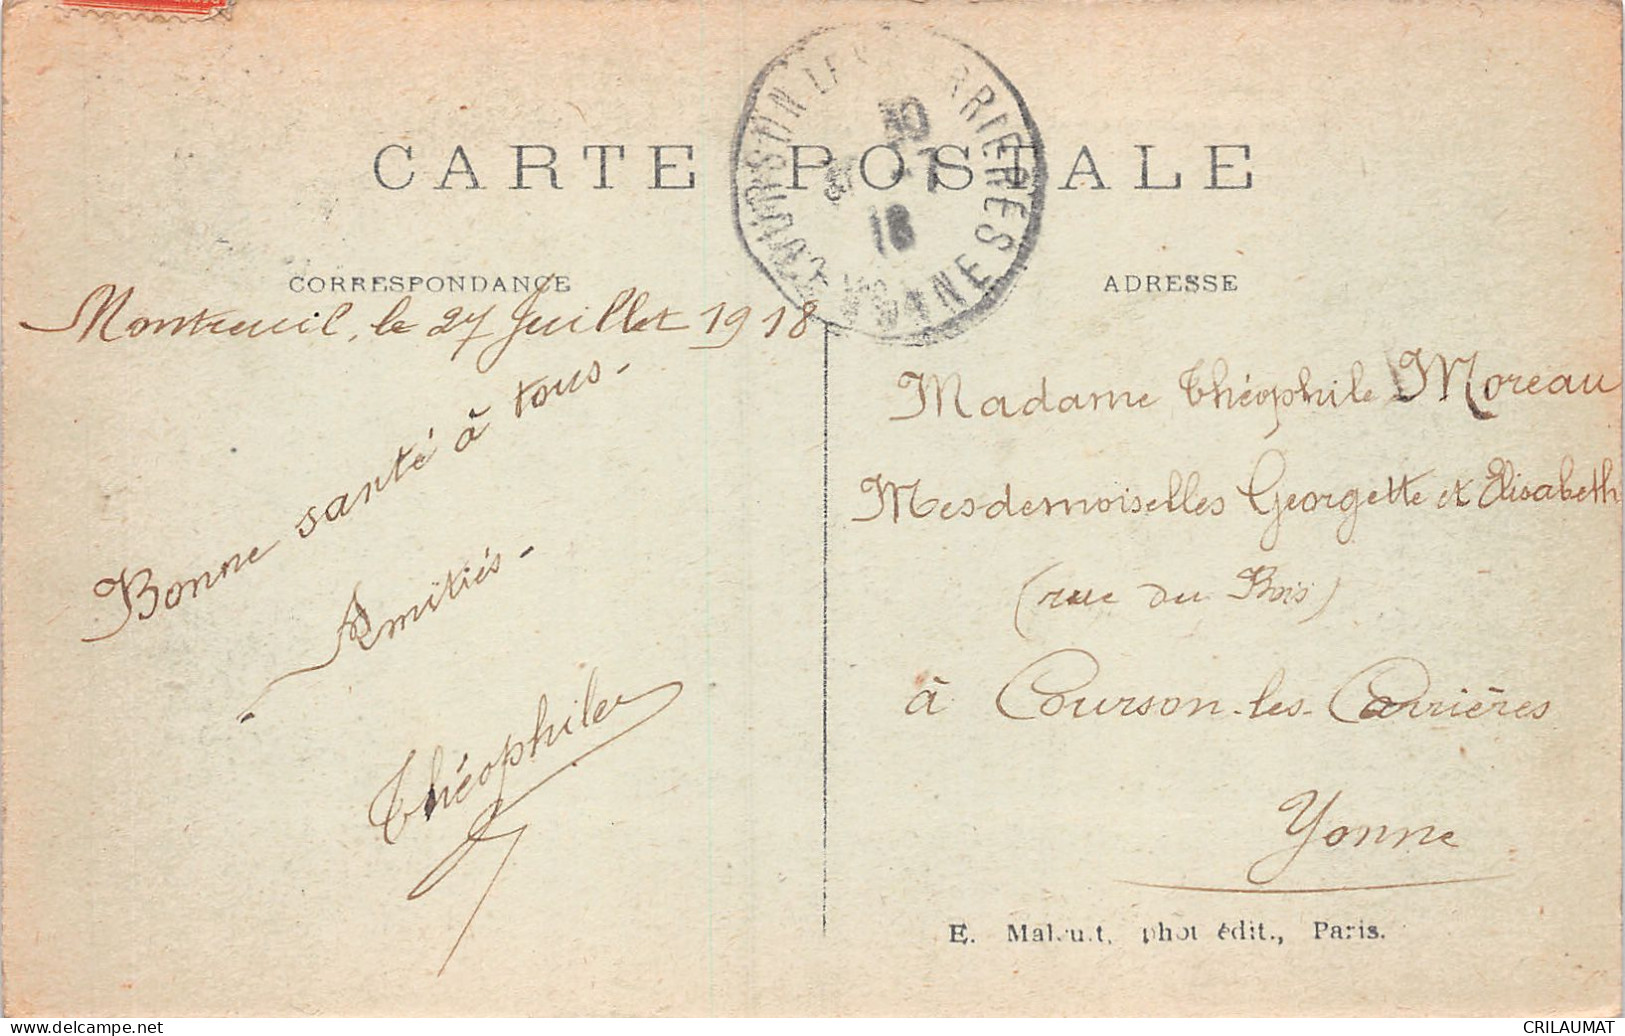 CARTE POSTALE
COURSON LES CARRIERES
YONNE
18
CORRESPONDANCE
Montreuil, le 27 Juillet 1918
Bonne santé à tous.
Amitiés.
Théophile
ADRESSE
Madame Théophile Moreau
Mesdemoiselles Georgette et Elisabeth
(rue du Bois)
à Courson-les-Carrières
Yonne
E. phot édit., Paris.
www.delcampe.net
CRILAUMAT